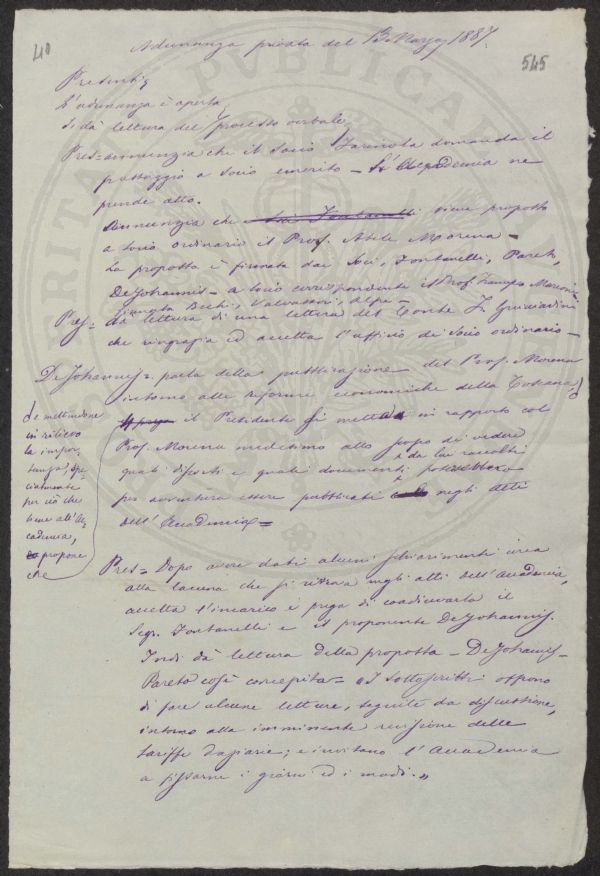 40
545
Adunanza privata del 13 Marzo 1887.
Presenti
L'adunanza è aperta
Si dà lettura del processo verbale
Pres: annunzia che il Socio domanda il
passaggio a Socio emerito – L'Accademia ne
prende atto.
Annunzia che viene proposto
a Socio ordinario il Prof. Abele Morena –
La proposta è firmata dai Soci, Fontanelli, Pareto,
De Johannis – a Socio corrispondente il Prof.
Pres = dà lettura di una lettera del Conte F. Guicciardini
che ringrazia ed accetta l'ufficio di Socio ordinario –
De Johannis = parla della pubblicazione del Prof. Morena
intorno alle riforme economiche della Toscana,
e mettendone
in rilievo
la impor-
tanza, spe-
cialmente
per ciò che
tiene all'Ac-
cademia,
propone
che
il Presidente si metta in rapporto col
Prof. Morena medesimo allo scopo di vedere
quali discorsi e quali documenti da lui raccolti
per avventura essere pubblicati negli Atti
dell'Accademia =
Pres = Dopo avere dati alcuni schiarimenti circa
alla lacuna che si ritrova negli atti dell'Accademia,
accetta l'incarico e prega di coadiuvarlo il
Segr. Fontanelli e il proponente De Johannis.
Indi dà lettura della proposta – De Johannis –
Pareto così concepita = «I sottoscritti offrono
di fare alcune letture, seguite da discussione,
intorno alla imminente revisione delle
tariffe daziarie; e invitano l'Accademia
a fissarne i giorni ed i modi.»